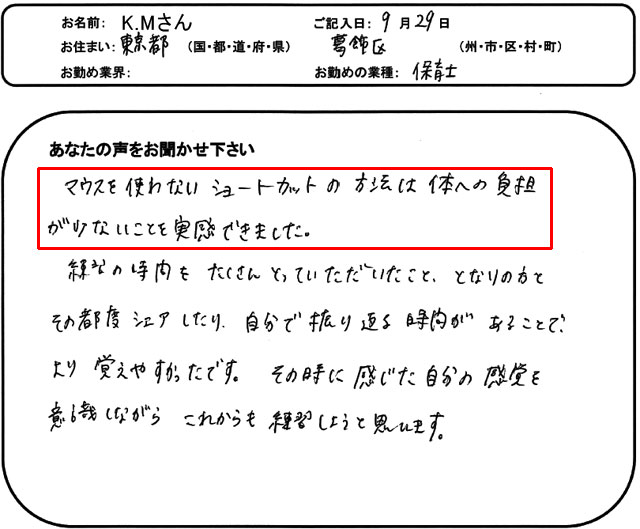 お名前： K.Mさん ご記入日： 9月29日
お住まい： 東京都 （国・都・道・府・県） 葛飾区 （州・市・区・村・町）
お勤め業界： お勤めの業種： 保育士
あなたの声をお聞かせ下さい
マウスを使わないショートカットの方法は体への負担
が少ないことを実感できました。
練習の時間をたくさんとっていただいたこと、となりの方と
その都度シェアしたり、自分で振り返る時間があることで、
より覚えやすかったです。その時に感じた自分の感覚を
意識しながらこれからも練習しようと思います。